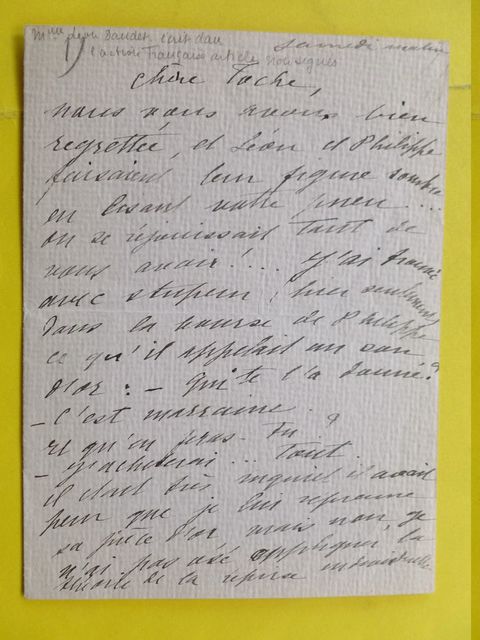 Mme Léon Daudet. écrit dans
l'action Française articles non signés
samedi matin
Chère Toche,
nous vous avons bien
regrettée, et Léon et Philippe
faisaient leur figure sombre
en lisant votre pneu....
on se réjouissait tant de
vous avoir!... J'ai trouvé
avec stupeur, hier seulement
dans la bourse de Philippe
ce qu'il appelait un sou
d'or: - Qui te l'a donné?
- C'est marraine.
et qu'en feras-tu?
- J'achèterai... Tout.
il était très inquiet il avait
peur que je lui reprenne
sa pièce d'or, mais non, je
n'ai pas osé appliquer la
théorie de la reprise individuelle